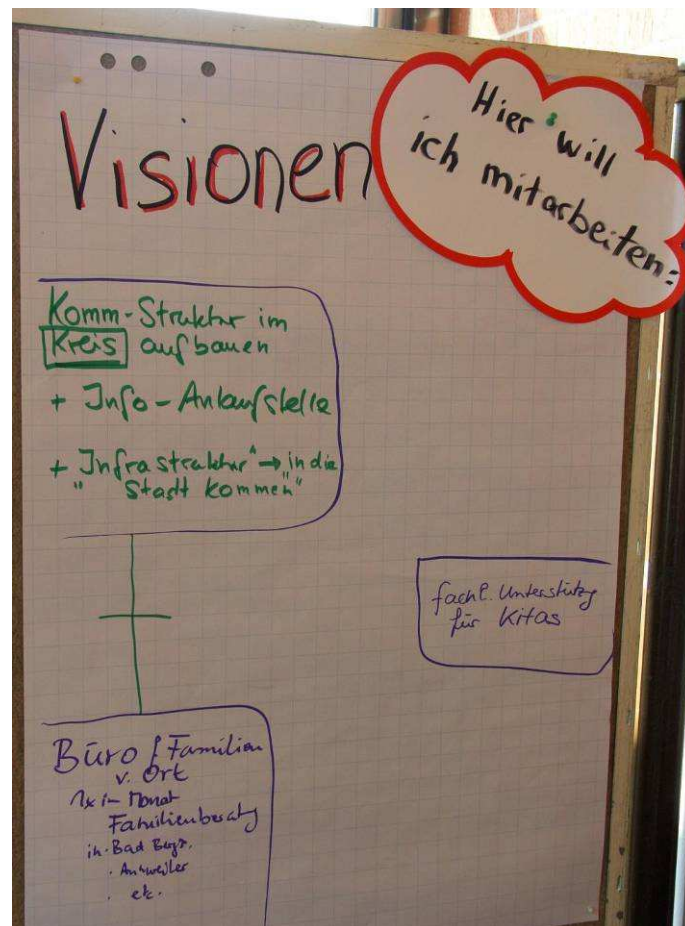 Visionen
Hier will
ich mitarbeiten:
Komm-Struktur im
Kreis aufbauen
+ Info-Anlaufstelle
+ "Infrastruktur" → in die
"Stadt kommen"
fachl. Unterstützg
für Kitas
Büro f. Familien
v. Ort
1x im Monat
Familienberatg
in · Bad Bergz.
· Annweiler
· etc.